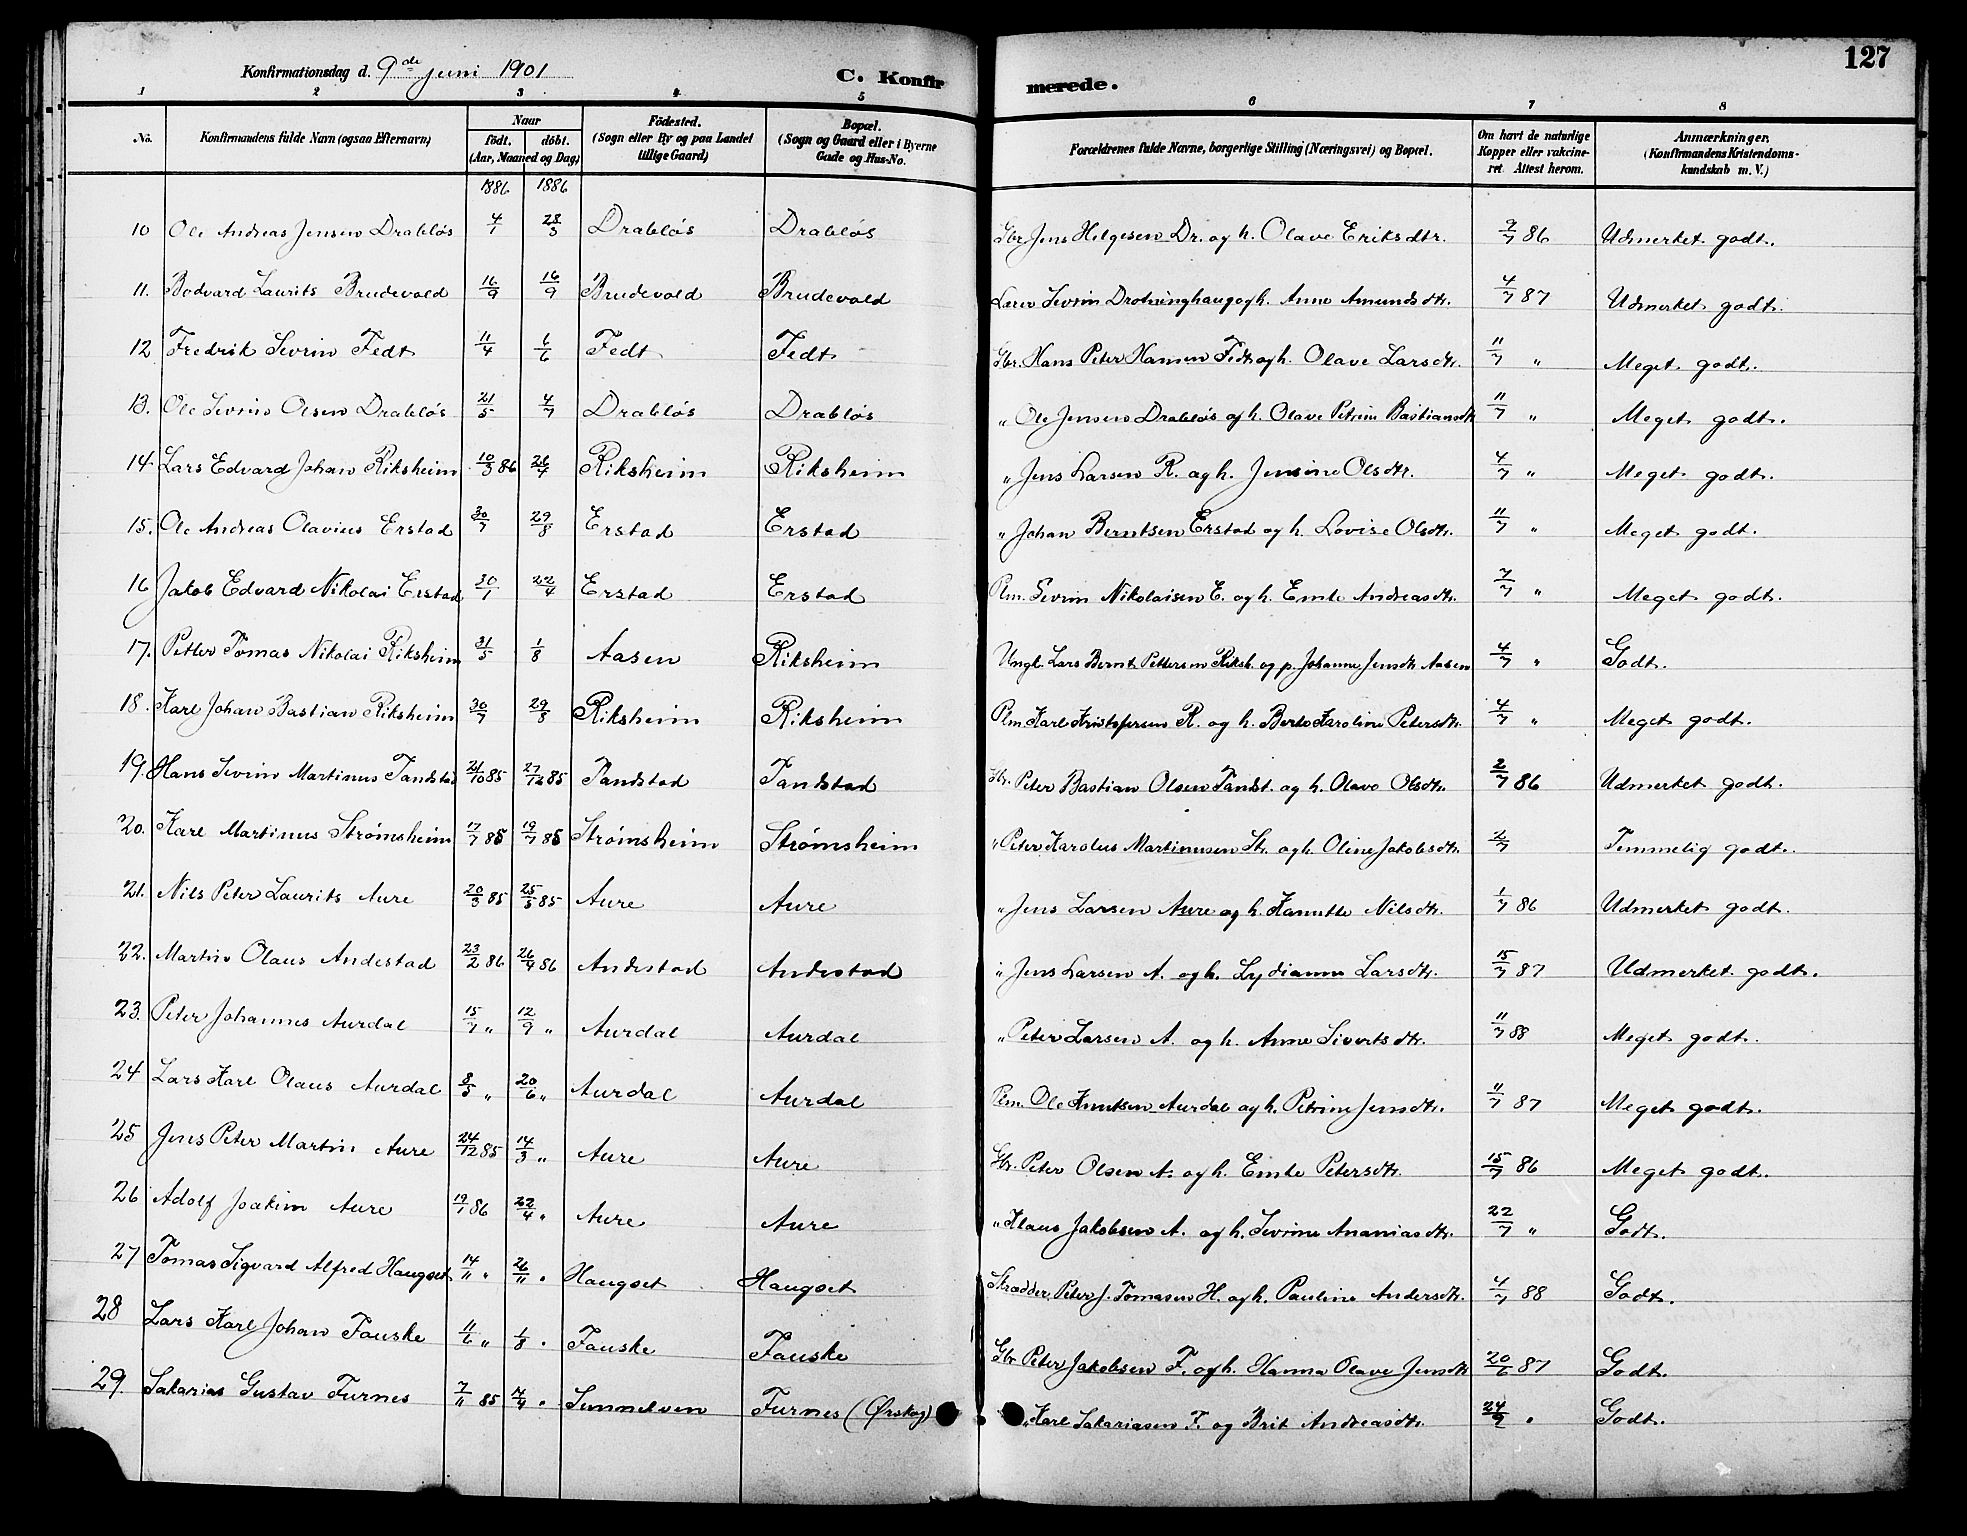 127
Konfirmationsdag d. 9de Juni 1901 C. Konfirmerede.
1 2 3 4 5 6 7 8
No. Konfirmandens fulde Navn (ogsaa Efternavn) Naar födt. döbt. (Aar, Maaned og Dag) Födested. (Sogn eller By og paa Landet tillige Gaard) Bopæl. (Sogn og Gaard eller i Byerne Gade og Hus-No. Forældrenes fulde Navne, borgerlige Stilling (Næringsvei) og Bopæl. Om havt de naturlige Kopper eller vakcineret Attest herom. Anmærkninger. (Konfirmandens Kristendomskundskab m. V.)
1886 1886
10 Ole Andreas Jensen Drabløs 4/1 28/3 Drabløs Drabløs Gbr. Jens Helgesen Dr. og h. Olave Eriksdtr. 9/7 86 Udmerket godt.
11. Bodvard Laurits Brudevold 16/9 16/9 Brudevold Brudevold Lærer Sevrin Drotninghaug og h. Anne Amundsdtr. 4/7 87 Udmerket godt.
12 Fredrik Sevrin Fedt 11/4 6/6 Fedt Fedt Gbr. Hans Peter Hansen Fedt og h. Olave Larsdtr. 11/7 " Meget godt.
13. Ole Sevrin Olsen Drabløs 21/5 4/7 Drabløs Drabløs " Ole Jensen Drabløs og h. Olave Petrine Bastiansdtr 11/7 " Meget godt.
14. Lars Edvard Johan Riksheim 10/3 86 26/4 Riksheim Riksheim " Jens Larsen R. og h. Jensine Olsdtr. 4/7 " Meget godt.
15. Ole Andreas Olavius Erstad 30/7 29/8 Erstad Erstad " Johan Berntsen Erstad og h. Lovise Olsdtr. 11/7 " Meget godt.
16 Jakob Edvard Nikolai Erstad 30/1 22/4 Erstad Erstad Plm. Sevrin Nikolaisen E. og h. Emle Andreasdtr. 7/7 " Meget godt.
17. Petter Tomas Nikolai Riksheim 31/5 1/8 Aasen Riksheim Ungk. Lars Bernt Pettersen Riksh. og p. Johanne Jensdtr Aasen 4/7 " Godt.
18. Karl Johan Bastian Riksheim 30/7 29/8 Riksheim Riksheim Plm. Karl Kristofersen R. og h. Berte Karoline Petersdtr. 4/7 " Meget godt.
19. Hans Sevrin Martinus Tandstad 21/10 85 27/12 85 Tandstad Tandstad Gbr. Peter Bastian Olsen Tandst. og h. Olave Olsdtr. 2/7 86 Udmerket godt.
20. Karl Martinus Strømsheim 17/7 85 19/7 85 Strømsheim Strømsheim " Peter Karolus Martinusen Str. og h. Oline Jakobsdtr. 2/7 Temmelig godt.
21. Nils Peter Laurits Aure 20/3 85 25/5 85 Aure Aure " Jens Larsen Aure og h. Kanutte Nilsdtr. 1/7 86 Udmerket godt.
22. Martin Olaus Andestad 23/2 86 26/4 86 Andestad Andestad " Jens Larsen A. og h. Lydianna Larsdtr. 15/7 87 Udmerket godt.
23. Peter Johannes Aurdal 15/7 " 12/9 " Aurdal Aurdal " Peter Larsen A. og h. Anne Sivertsdtr. 11/7 88 Meget godt.
24 Lars Karl Olaus Aurdal 8/5 " 20/6 " Aurdal Aurdal Plm. Ole Knutsen Aurdal og h. Petrine Jensdtr. 11/7 87 Meget godt.
25 Jens Peter Martin Aure 24/12 85 14/3 " Aure Aure Gbr. Peter Olsen A. og h. Emle Petersdtr. 15/7 86 Meget godt.
26 Adolf Joakim Aure 19/1 86 22/4 " Aure Aure " Klaus Jakobsen A. og h. Sevrine Ananiasdtr. 22/7 " Godt.
27 Tomas Sigvard Alfred Haugset 14/11 " 26/11 " Haugset Haugset Skrædder. Peter J. Tomasen H. og h. Pauline Andersdtr. 4/7 88 Godt.
28 Lars Karl Johan Fauske 11/6 " 1/8 " Fauske Fauske Gbr Peter Jakobsen F. og h. Hanna Olave Jensdtr 20/6 87 Godt.
29. Sakarias Gustav Furnes 7/11 85 4/4 " Sunnelven Furnes (Ørskog) " Karl Sakariasen F. og Brit Andreasdtr. 24/9 " Godt.